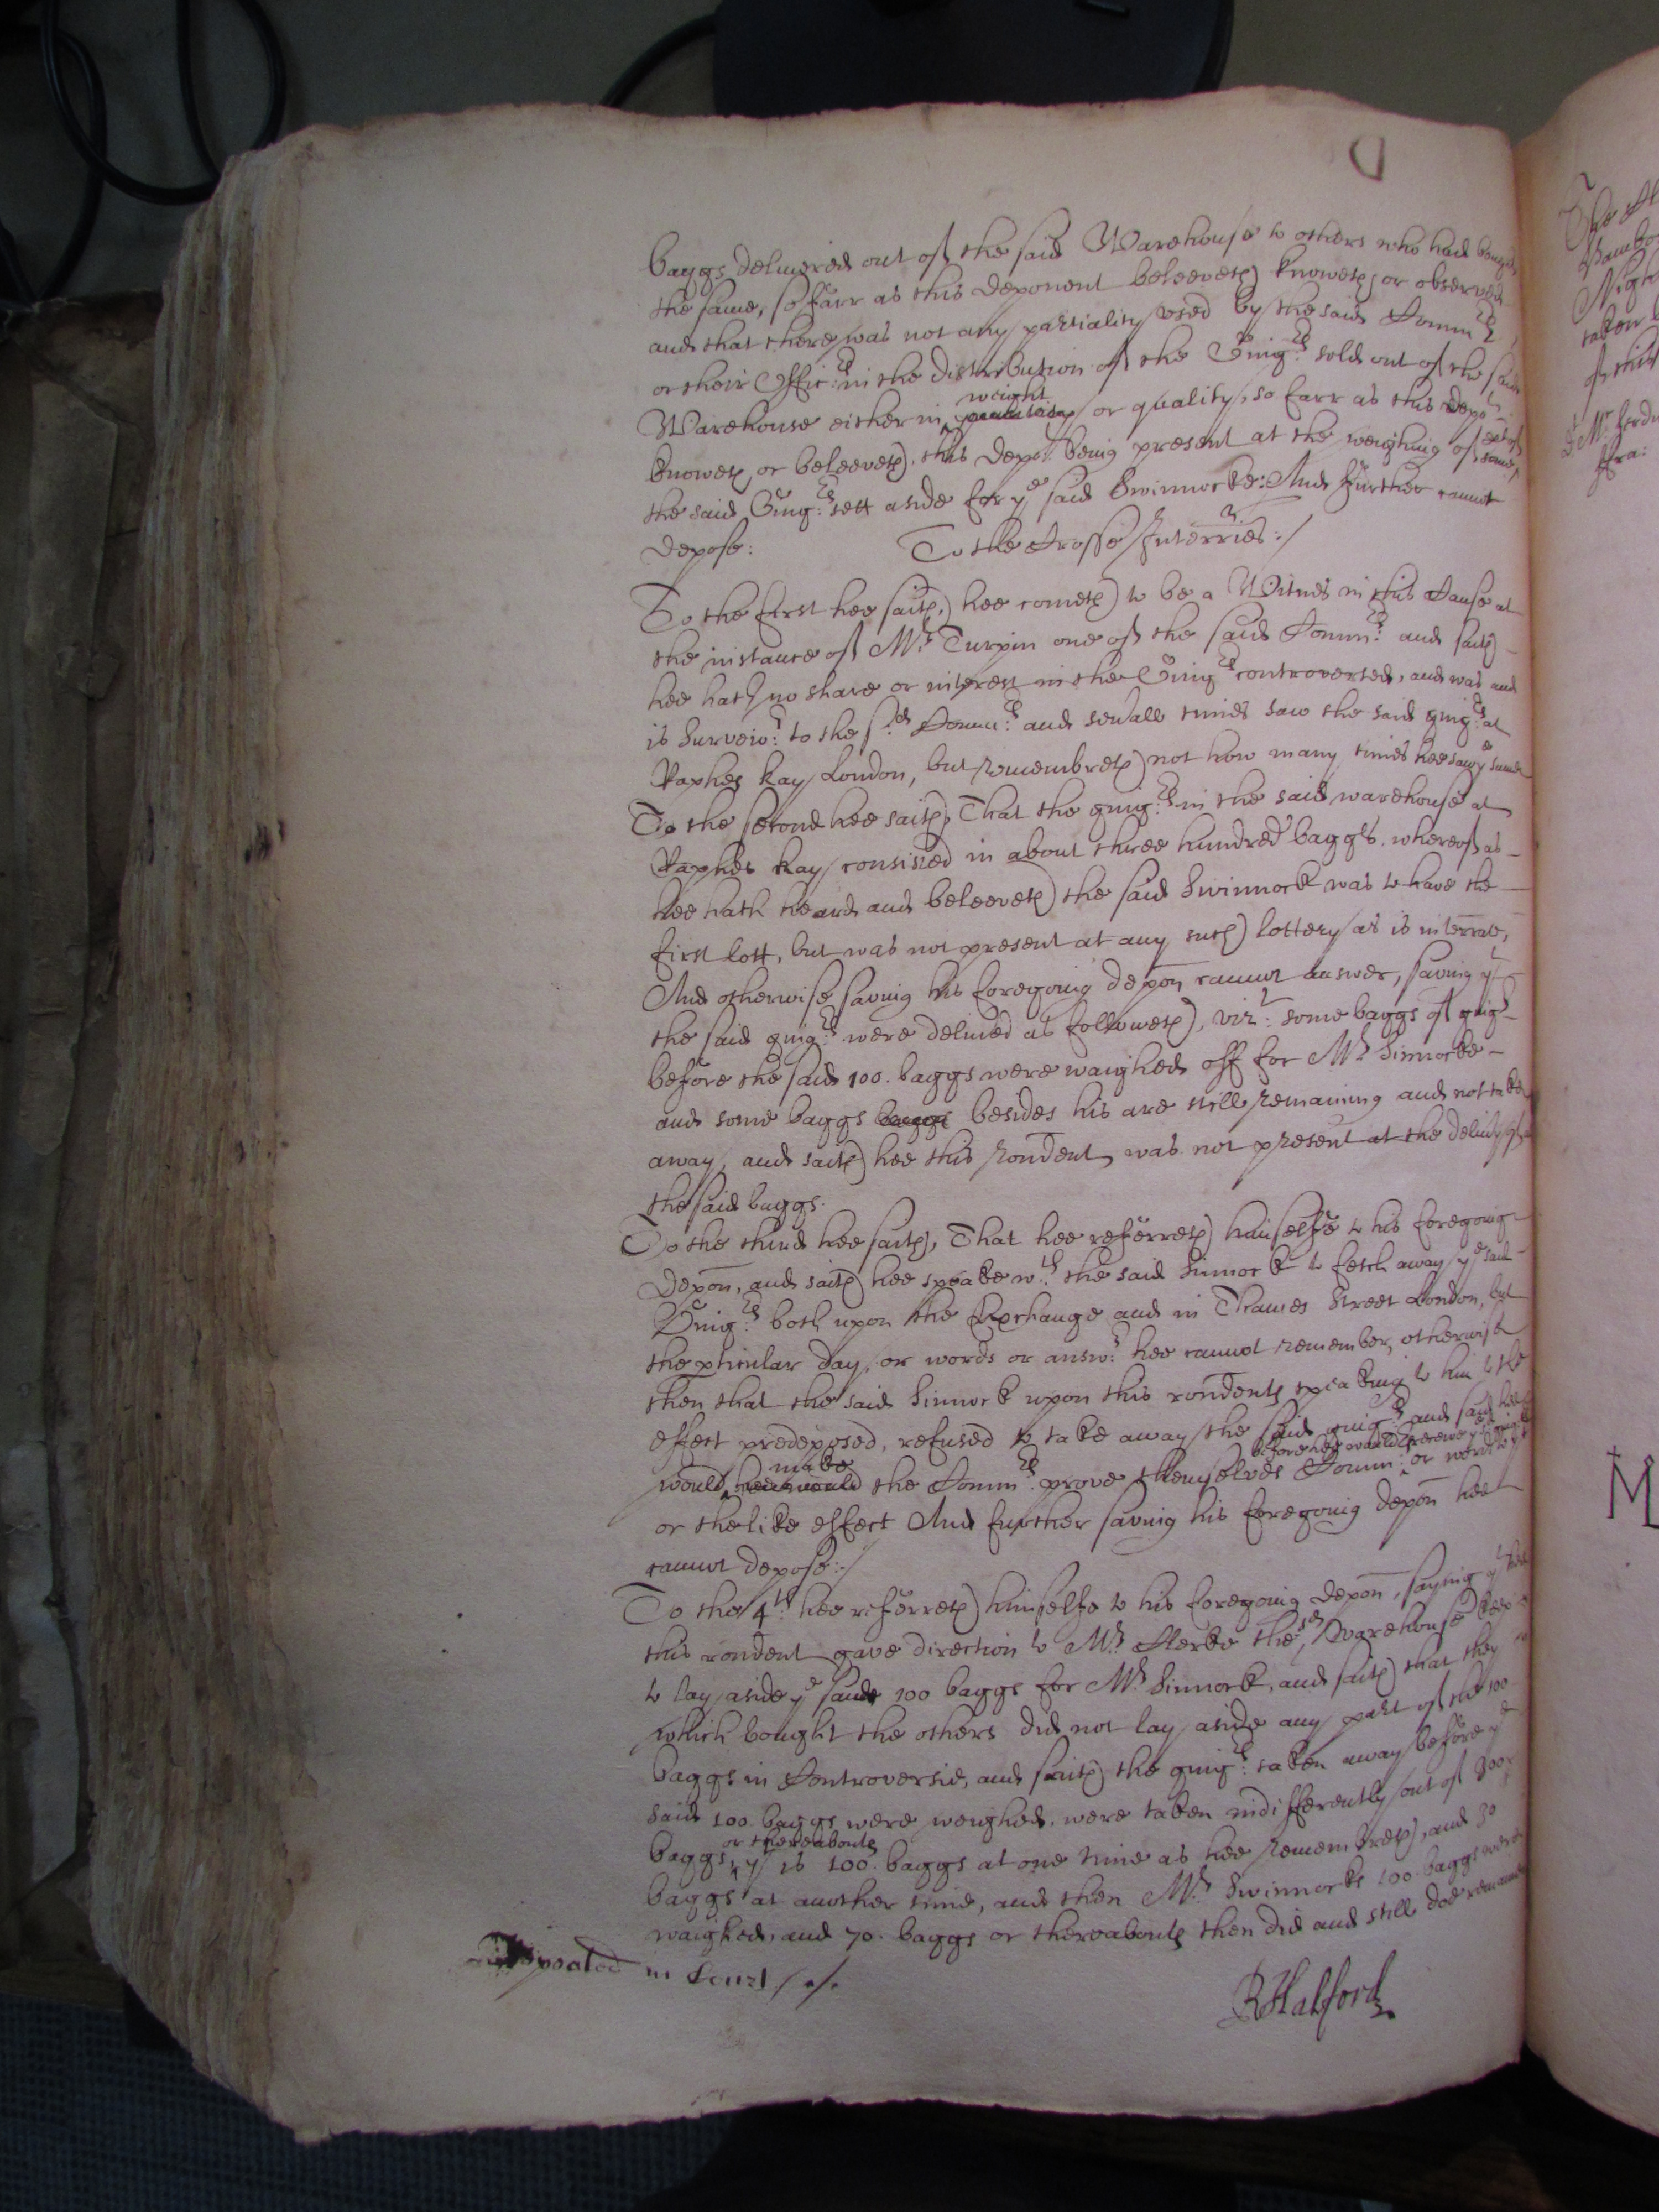 baggs delivered out of the said Warehouse to others who had bought
the same, so farr as this deponent beleeveth knoweth, or observed
and that there was not any partiality used by the said Comm.rs
or their Offic:rs in the distribution of the Ging:rs sold out of the said
weight
Warehouse either in quantity or quality, so farr as this depo.t
knoweth or beleeveth, this depo.t being present at the weighing of
the said Ging:rs sett aside for ye said Swinnocke: And further cannot
depose:
To the Crosse Interries:/
To the first hee saith, hee cometh to be a Witnes in this Cause at
the instance of Mr. Turpin one of the said Comm.rs and saith
hee hath no share or interest in the Ging.rs controversed, and was and
is Surveio.r to the s.ed Comm.rs and sevall times saw the said ging.rs at
Raphes Kay London, but remembreth not how many times hee saw ye same
To the second hee saith, That the ging.rs in the said warehouse at
Raphes Kay consisted in about three hundred baggs. whereof as
hee hath heard and beleeveth the said Swinnock was to have the
first lott, but was not present at any such lottery as is interrate,
And otherwise saving his foregoing depon cannot answer, saving yt
the said ging.rs were delived as followeth, viz.t some baggs of ging.rs
before the said 100. baggs were waighed off for Mr. Sinnocke
and some baggs baggs besides his are still remaining and not taken
away, and saith hee this rondent was not present at the delivy of
the said baggs.
To the third hee saith, That hee referreth himselfe to his foregoing
depon, and saith hee spoake w.th the said Sinnock to fetch away ye said
Ging.rs both upon the Exchange and in Thames Street London, but
the pticular day, or words or answ.r hee cannot remember, otherwise
then that the said Sinnock upon this rondents speaking to him to the
effect predeposed, refused to take away the said ging.rs and said hee
make before hee would receive
would hee would the Comm.rs prove themselves Comm.rs or words to yt
or the like effect And further saving his foregoing depon hee
cannot depose:/
To the 4.th hee referreth himselfe to his foregoing depon, saying yt
this rondent gave direction to Mr. Clerke the s.d Warehouse
to lay aside ye said 100 baggs for Mr. Sinnock, and saith that they
which bought the others did not lay aside any part of the 100
baggs in Controversie, and saith the ging.rs taken away before ye
said 100. baggs were weighed, were taken indifferently out of 300
or thereabouts
baggs, yt is 100. baggs at one time as hee remembreth, and 30
baggs at another time, and then Mr. Swinnocks 100. baggs were
waighed, and 70. baggs or thereabouts then did and still doe remaine
in Court /./.
R Halford